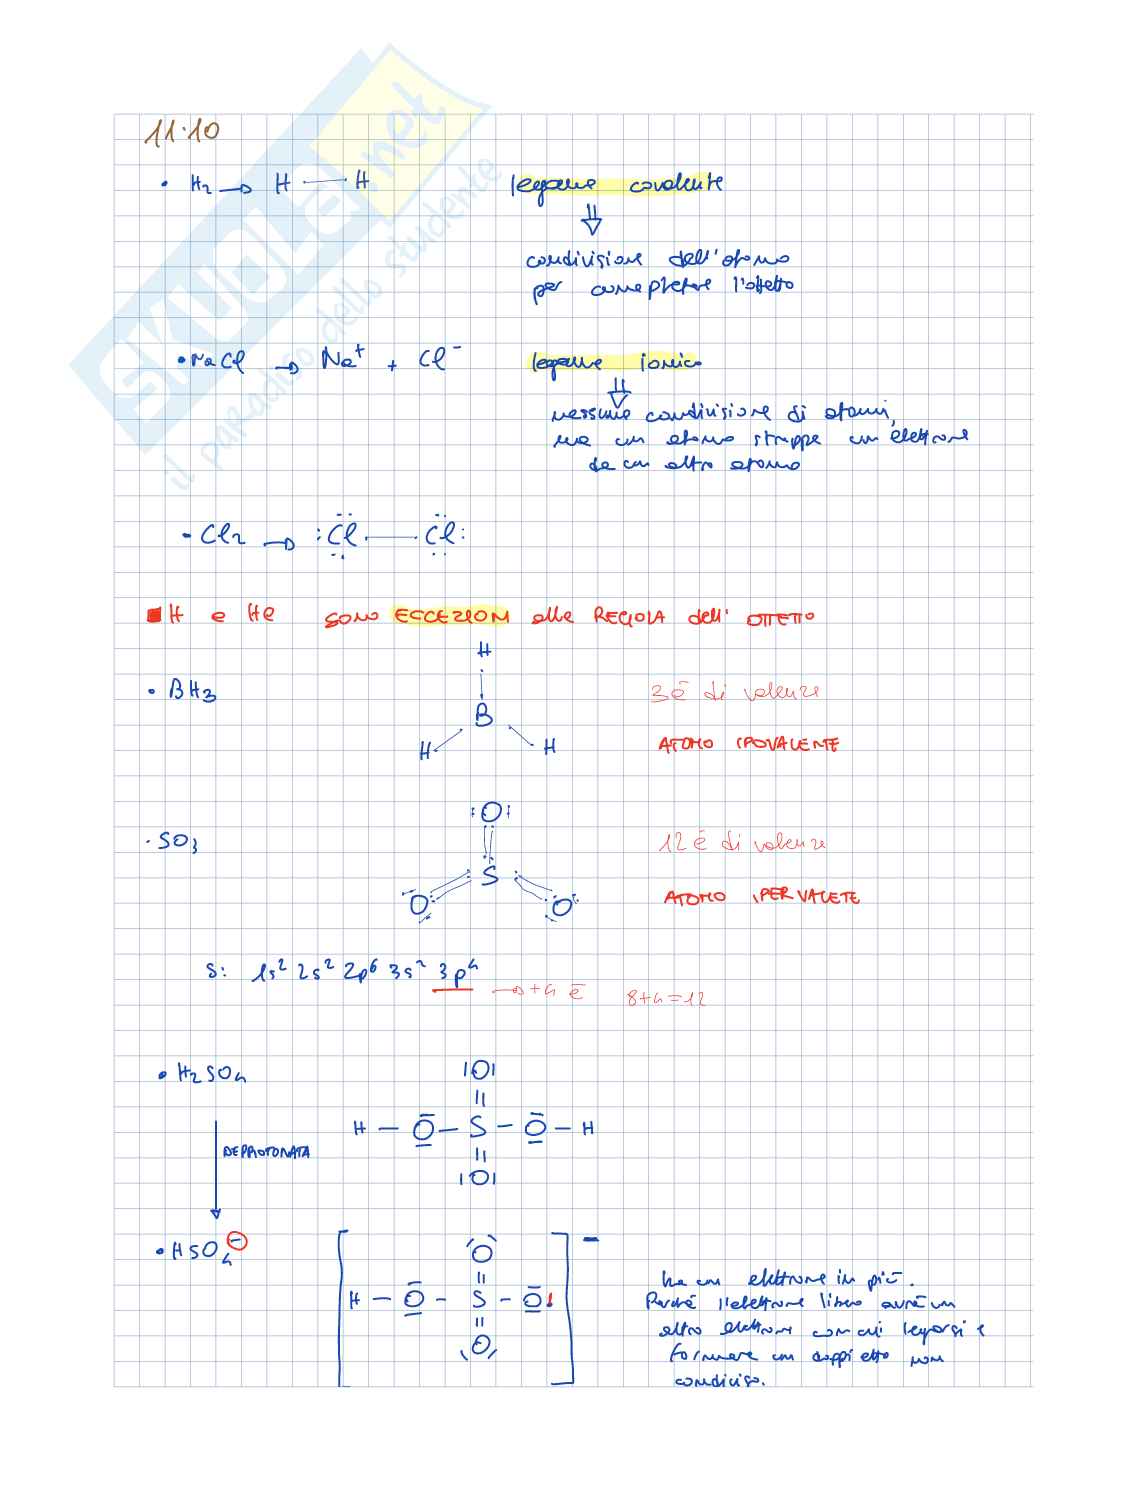 SKUOLA.net
il paradiso dello studente
11.10
• H₂ → H — H legame covalente
⇓
condivisione dell'atomo
per completare l'ottetto
• NaCl → Na⁺ + Cl⁻ legame ionico
⇓
nessuna condivisione di atomi,
ma un atomo strappa un elettrone
da un altro atomo
• Cl₂ → :Cl — Cl:
H e He sono ECCEZIONI alla REGOLA dell' OTTETTO
H
• BH₃ 3 e⁻ di valenza
B
H H
ATOMO IPOVALENTE
:O:
• SO₃ 12 e⁻ di valenza
S
O O
ATOMO IPERVALETE
S: 1s² 2s² 2p⁶ 3s² 3p⁴
→ +4 e⁻ 8+4=12
• H₂SO₄ |O|
||
H — O — S — O — H
DEPROTONATA
||
|O|
• HSO₄⁻ [ O ]⁻
||
H — O — S — O|
||
O
ha un elettrone in più.
Perché l'elettrone libero avrà un
altro elettrone con cui legarsi e
formare un doppietto non
condiviso.